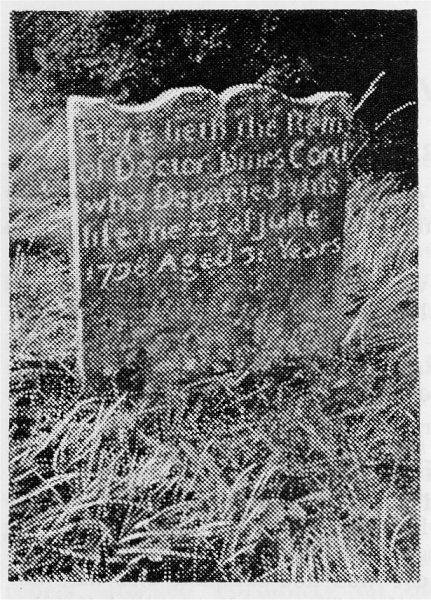 Here lieth the Rem
of Doctor James Con
who Departed this
life the 23 of June
1798 Aged 31 Years